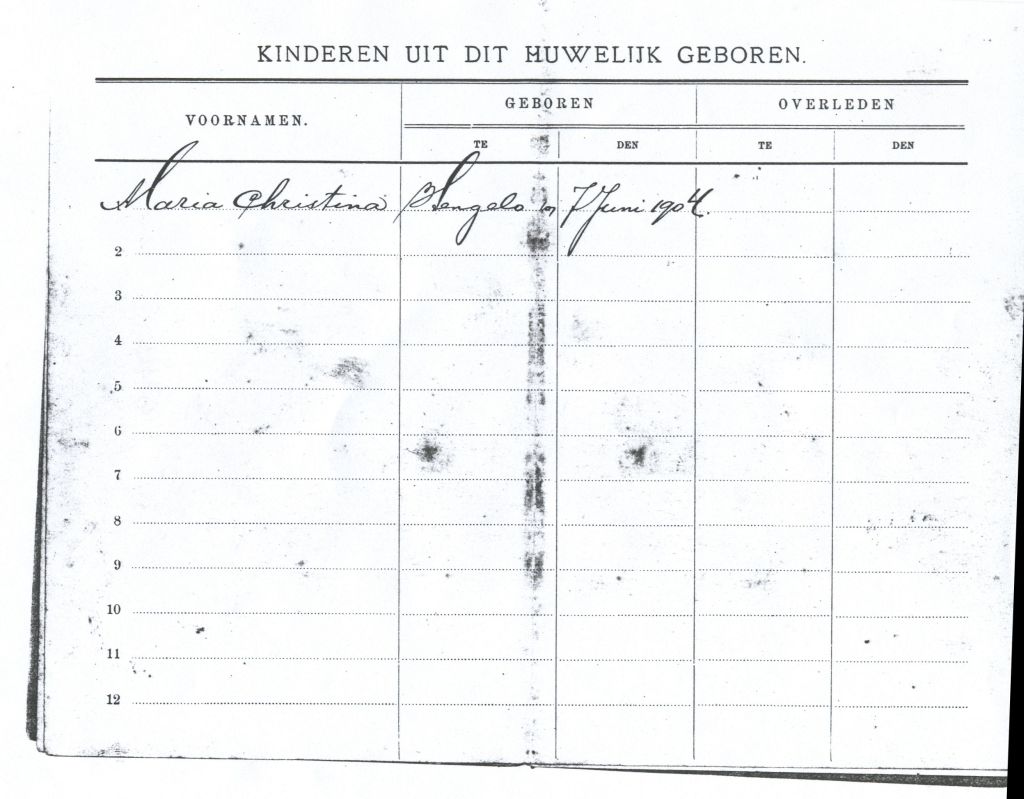 KINDEREN UIT DIT HUWELIJK GEBOREN.
VOORNAMEN. GEBOREN OVERLEDEN
TE DEN TE DEN
Maria Christina Hengelo 7 Juni 1904.
2
3
4
5
6
7
8
9
10
11
12